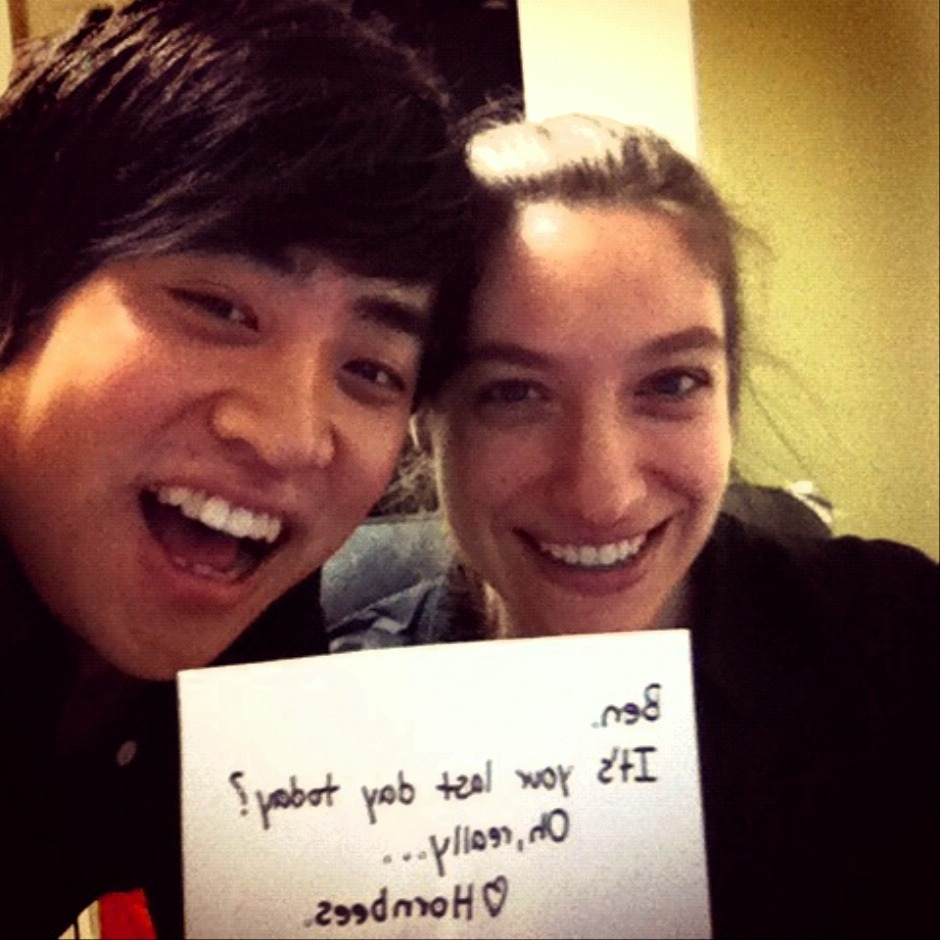 Ben.
It's your last day today?
Oh, really...
♡Hornbees.